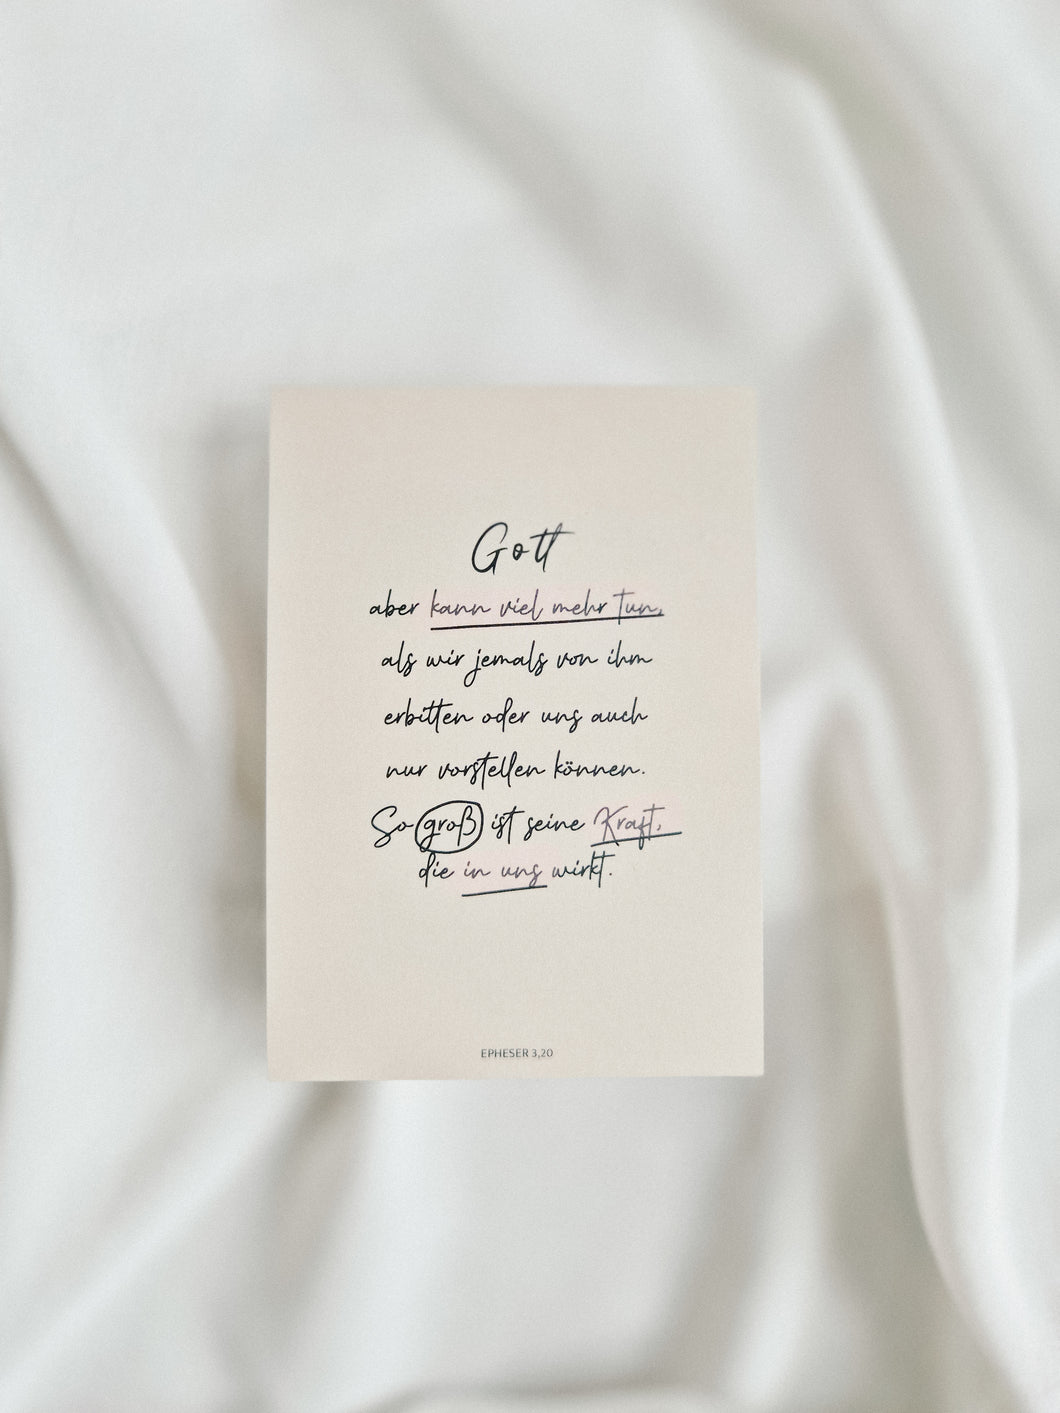 Gott
aber kann viel mehr tun,
als wir jemals von ihm
erbitten oder uns auch
nur vorstellen können.
So groß ist seine Kraft,
die in uns wirkt.
EPHESER 3,20